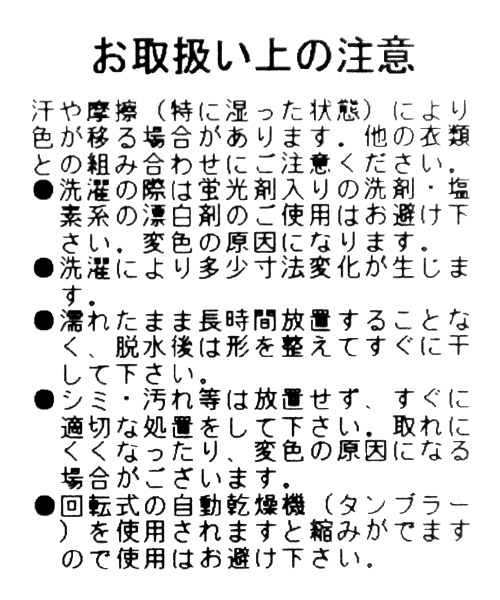 お取扱い上の注意
汗や摩擦（特に湿った状態）により
色が移る場合があります．他の衣類
との組み合わせにご注意ください．
●洗濯の際は蛍光剤入りの洗剤・塩
素系の漂白剤のご使用はお避け下
さい．変色の原因になります．
●洗濯により多少寸法変化が生じま
す．
●濡れたまま長時間放置することな
く、脱水後は形を整えてすぐに干
して下さい．
●シミ・汚れ等は放置せず、すぐに
適切な処置をして下さい．取れに
くくなったり、変色の原因になる
場合がございます．
●回転式の自動乾燥機（タンブラー
）を使用されますと縮みがでます
ので使用はお避け下さい．